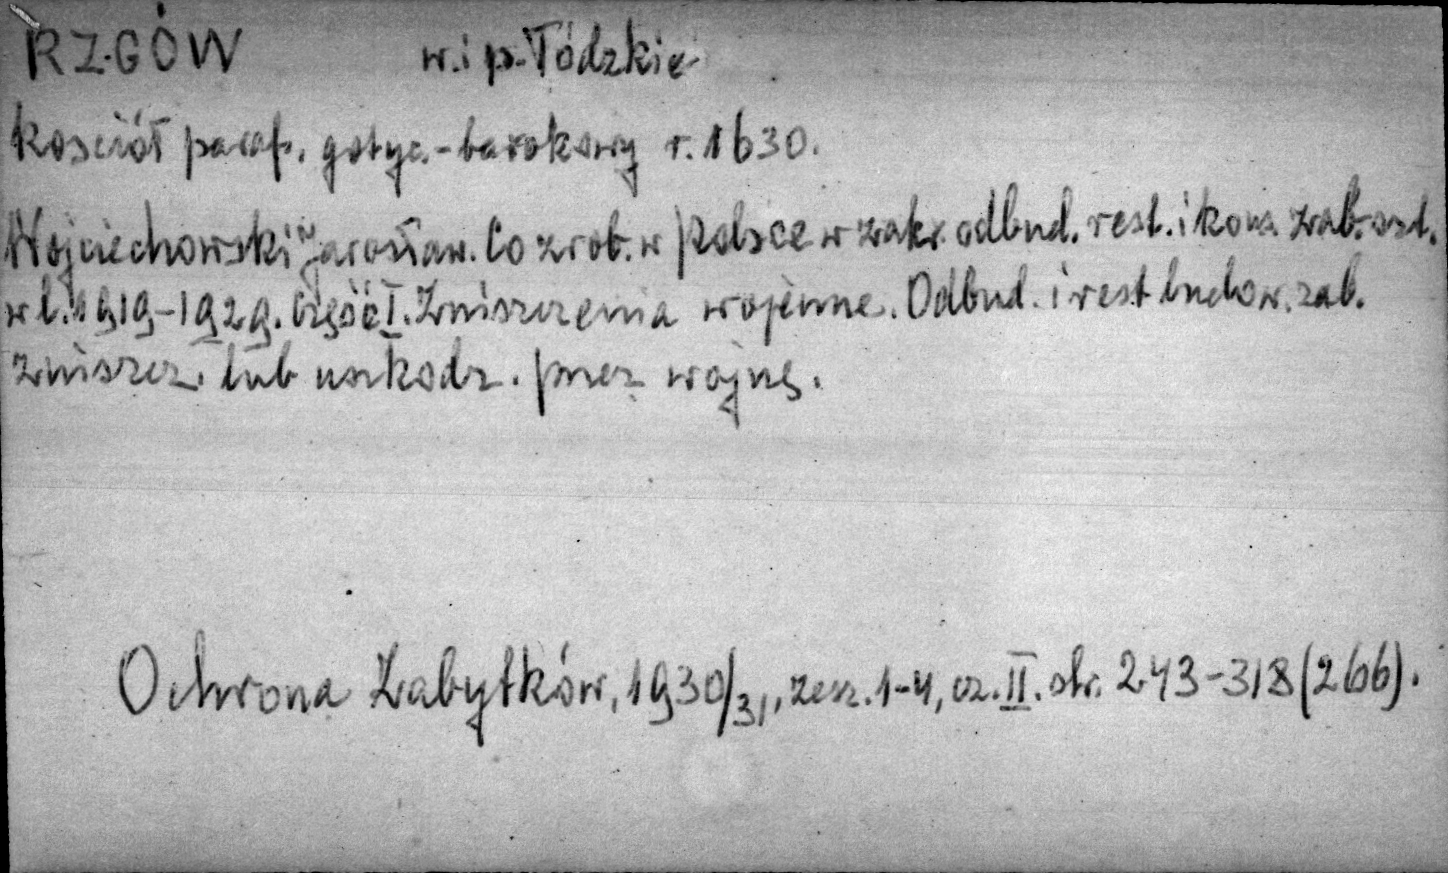 RZGÓW w. i p. Łódzkie
Kościół paraf. gotyc.-barokowy r. 1630.
Wojciechowski Jarosław. Co zrob. w Polsce w zakr. odbud. rest. i kons. zab. szt.
w l. 1919-1929. Część I. Zniszczenia wojenne. Odbud. i rest budow. zab.
zniszcz. lub uszkodz. przez wojnę.
Ochrona Zabytków, 1930/31, zesz. 1-4, cz. II. str. 243-318 (266).